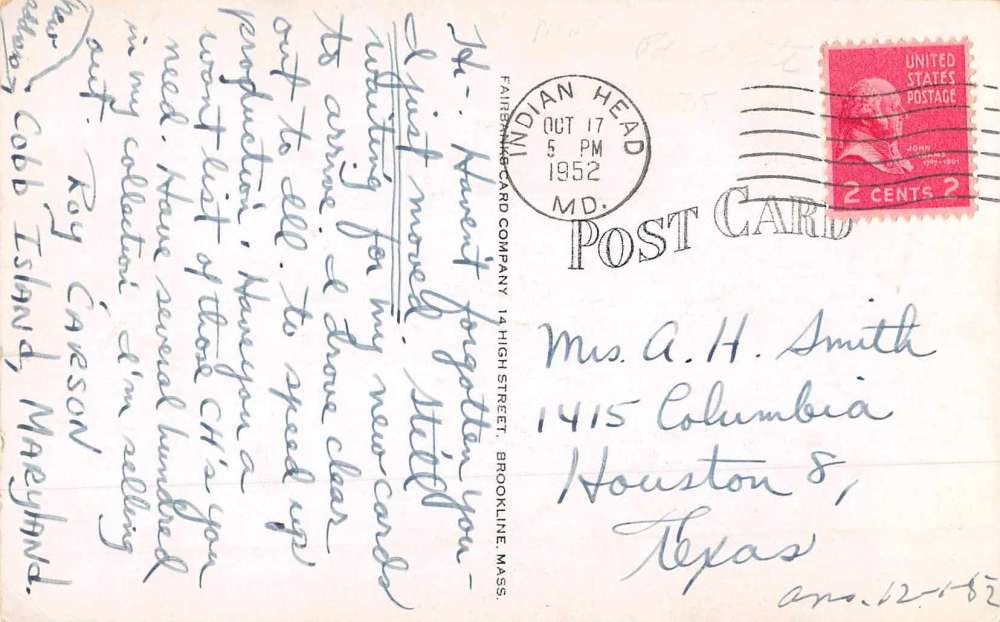 Hi - Haven't forgotten you -
I just moved. Still
waiting for my new cards
to arrive. I drove clear
out to Ill. to speed up
production. Have you a
want list of those CH's you
need. Have several hundred
in my collection I'm selling
out. Roy CARSON
Cobb Island, MARYLAND.
new
address
FAIRBANKS CARD COMPANY 14 HIGH STREET, BROOKLINE, MASS.
INDIAN HEAD
OCT 17
5 PM
1952
MD.
UNITED
STATES
POSTAGE
JOHN
ADAMS
1797-1801
2 CENTS 2
POST CARD
Mrs. A. H. Smith
1415 Columbia
Houston 8,
Texas
ans. 12-1-52